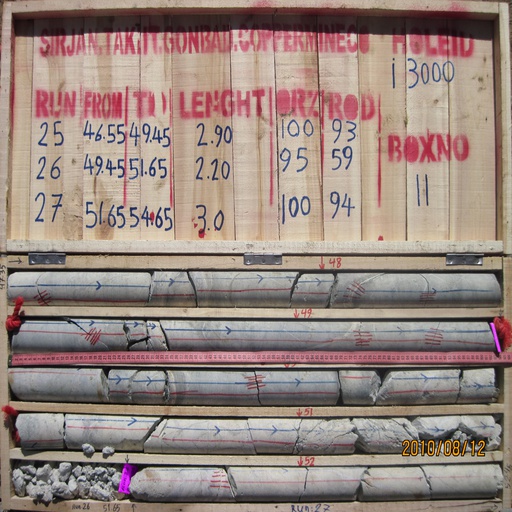 SIRJAN.TAKHT.GONBAD.COPPERMINECO HOLEID
i 3000
RUN FROM TO LENGHT ORZ RQD
25 46.55 49.45 2.90 100 93
BOXNO
26 49.45 51.65 2.20 95 59
11
27 51.65 54.65 3.0 100 94
48
49
51
2010/08/12
52
51.65
Run:27